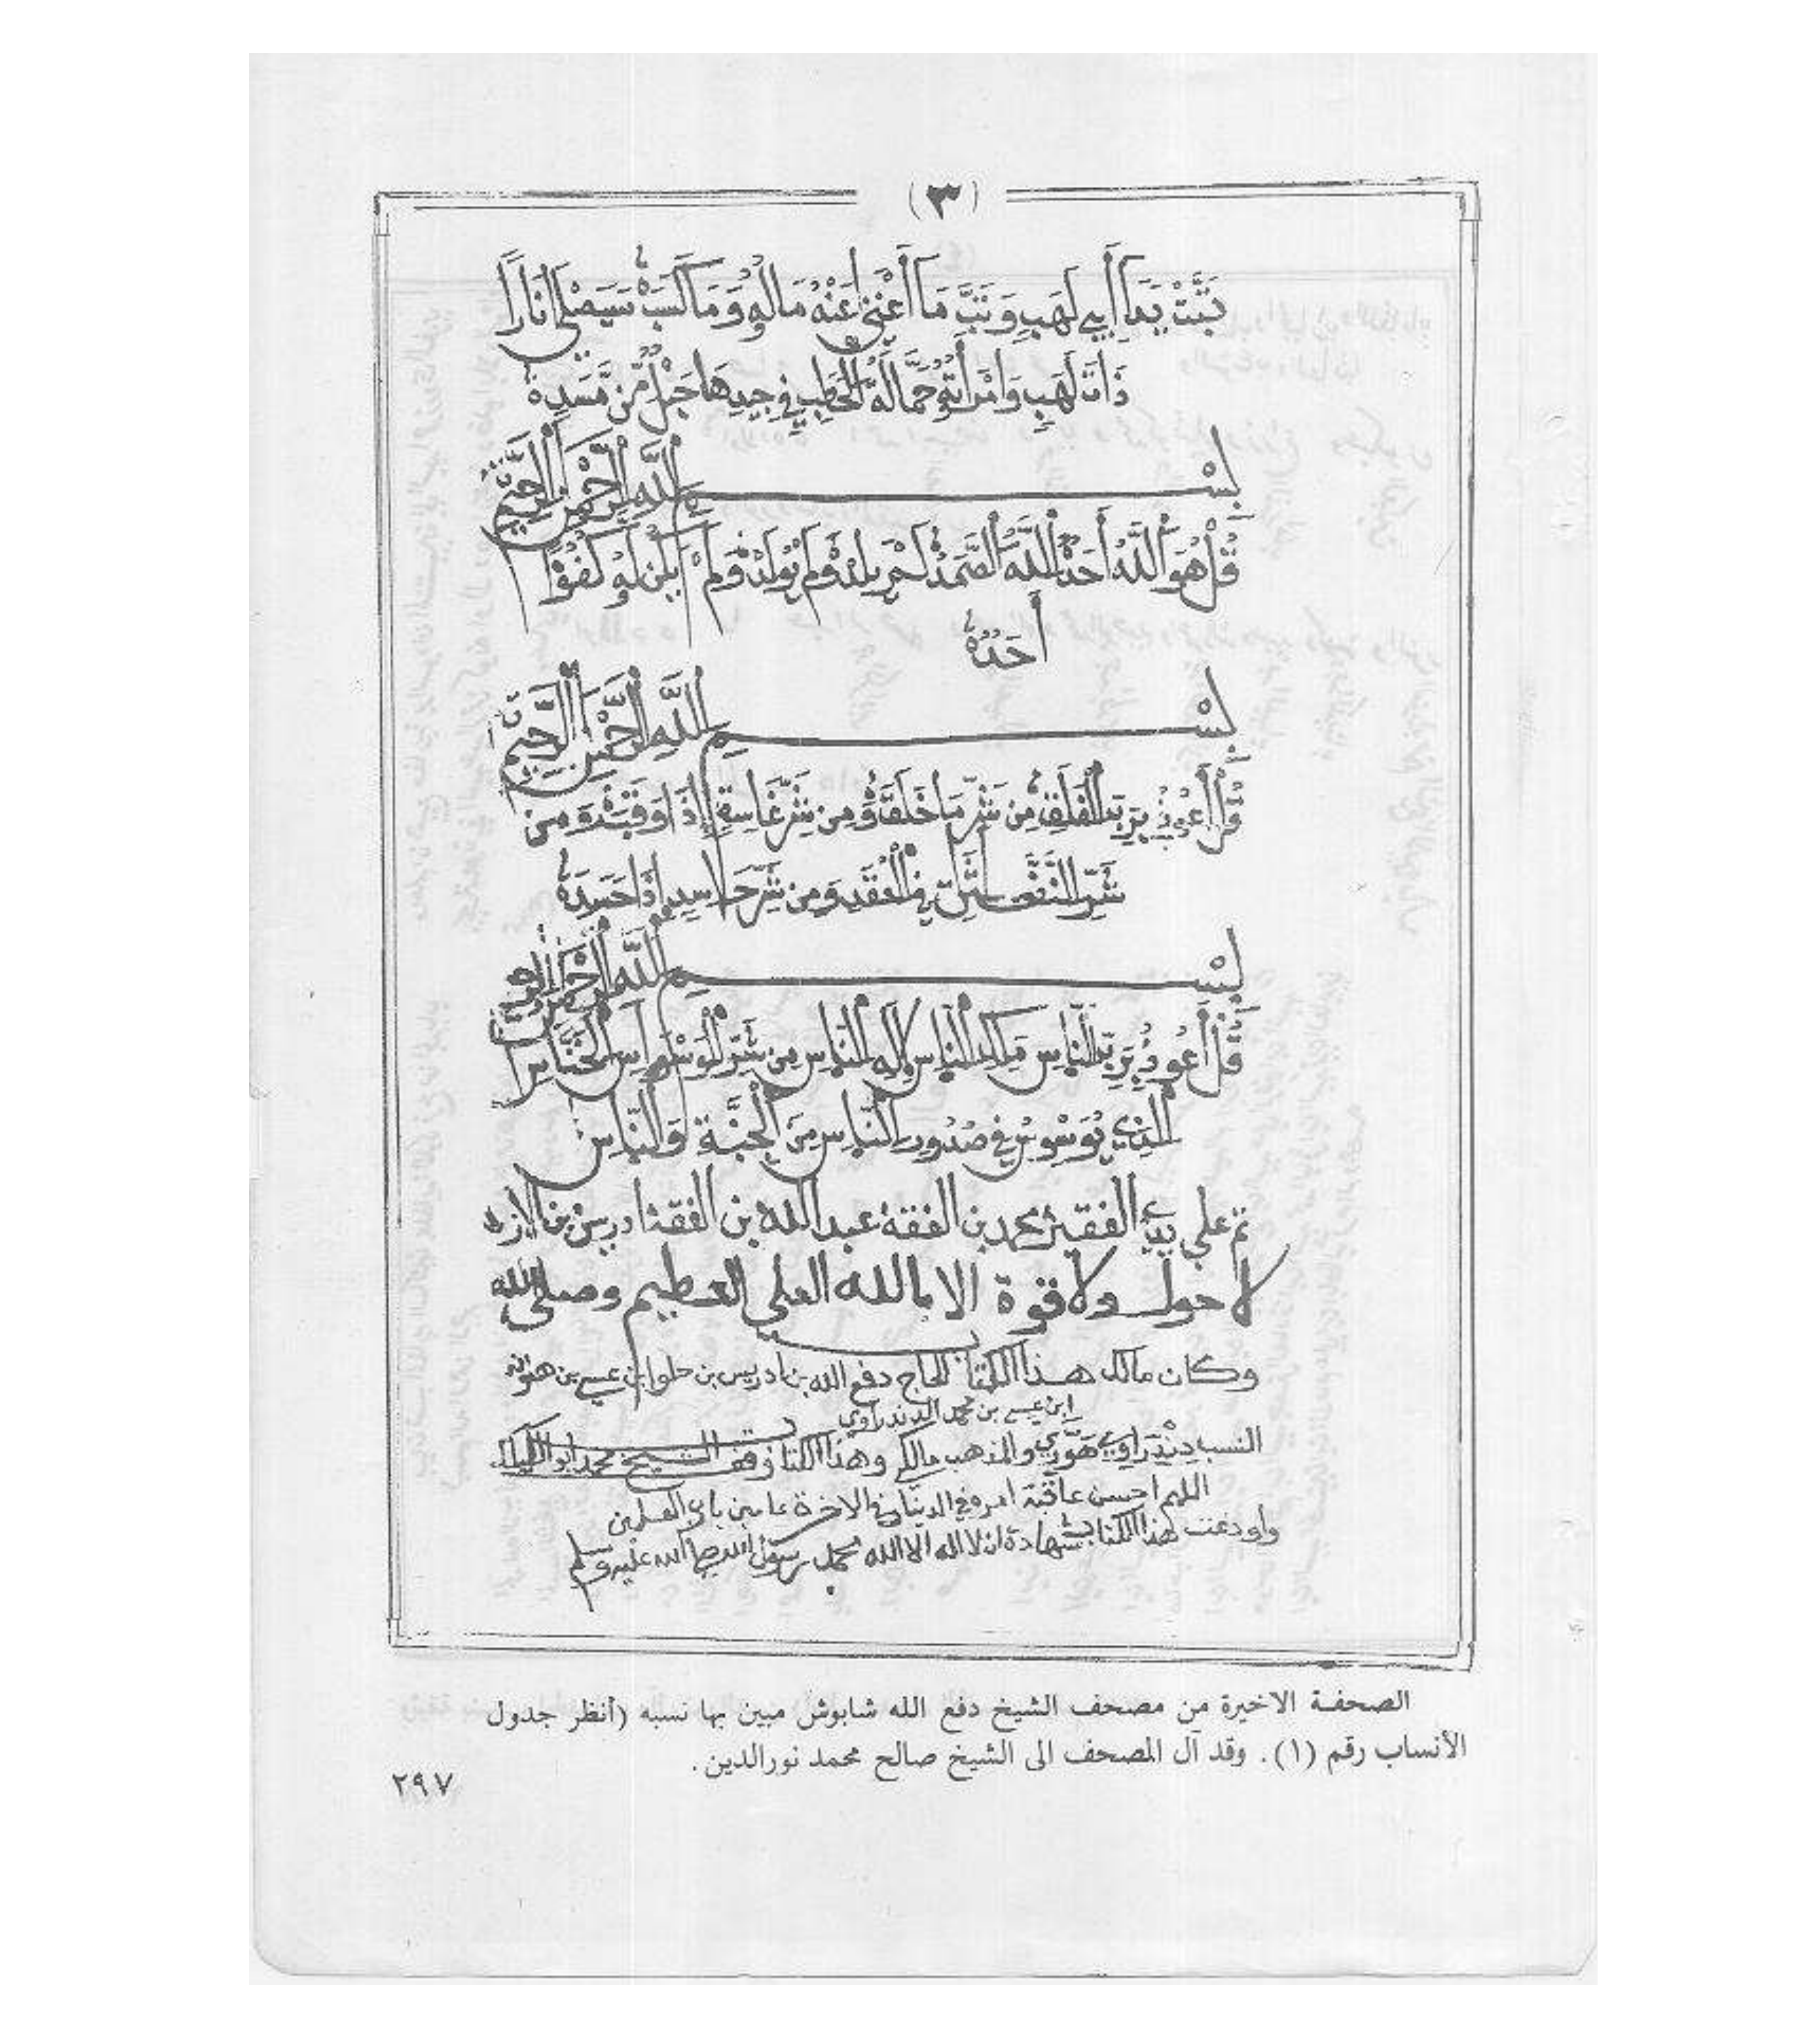 (٣)
تَبَّتْ يَدَا أَبِي لَهَبٍ وَتَبَّ مَا أَغْنَى عَنْهُ مَالُهُ وَمَا كَسَبَ سَيَصْلَى نَارًا
ذَاتَ لَهَبٍ وَامْرَأَتُهُ حَمَّالَةُ الْحَطَبِ فِي جِيدِهَا حَبْلٌ مِّن مَّسَدٍ
بِسْمِ اللَّهِ الرَّحْمَنِ الرَّحِيمِ
قُلْ هُوَ اللَّهُ أَحَدٌ اللَّهُ الصَّمَدُ لَمْ يَلِدْ وَلَمْ يُولَدْ وَلَمْ يَكُن لَهُ كُفُؤًا
أَحَدٌ
بِسْمِ اللَّهِ الرَّحْمَنِ الرَّحِيمِ
قُلْ أَعُوذُ بِرَبِّ الْفَلَقِ مِن شَرِّ مَا خَلَقَ وَمِن شَرِّ غَاسِقٍ إِذَا وَقَبَ وَمِن
شَرِّ النَّفَّاثَاتِ فِي الْعُقَدِ وَمِن شَرِّ حَاسِدٍ إِذَا حَسَدَ
بِسْمِ اللَّهِ الرَّحْمَنِ الرَّحِيمِ
قُلْ أَعُوذُ بِرَبِّ النَّاسِ مَلِكِ النَّاسِ إِلَهِ النَّاسِ مِن شَرِّ الْوَسْوَاسِ الْخَنَّاسِ
الَّذِي يُوَسْوِسُ فِي صُدُورِ النَّاسِ مِنَ الْجِنَّةِ وَالنَّاسِ
تم علي يدي الفقير محمد بن الفقه عبد الله بن الفقه ادريس بن
لا حول ولا قوة الا بالله العلى العظيم وصلى الله
وكان مالك هذا الكتاب الحاج دفع الله بن ادريس بن حلوا بن عيسي بن
ابن عيسى بن محمد الدندراوي
النسب دندراوي هوّاري والمذهب مالكي وهذا الكتاب وقف الشيخ محمد
اللهم احسن عاقبة امره في الدنيا وفي الاخرة ءامين يا رب العلمين
واودعت هذا الكتاب شهادة ان لا اله الا الله محمد رسول الله صلى الله عليه وسلم
الصحفة الاخيرة من مصحف الشيخ دفع الله شابوش مبين بها نسبه (أنظر جدول
الأنساب رقم (١). وقد آل المصحف الى الشيخ صالح محمد نورالدين.
٢٩٧